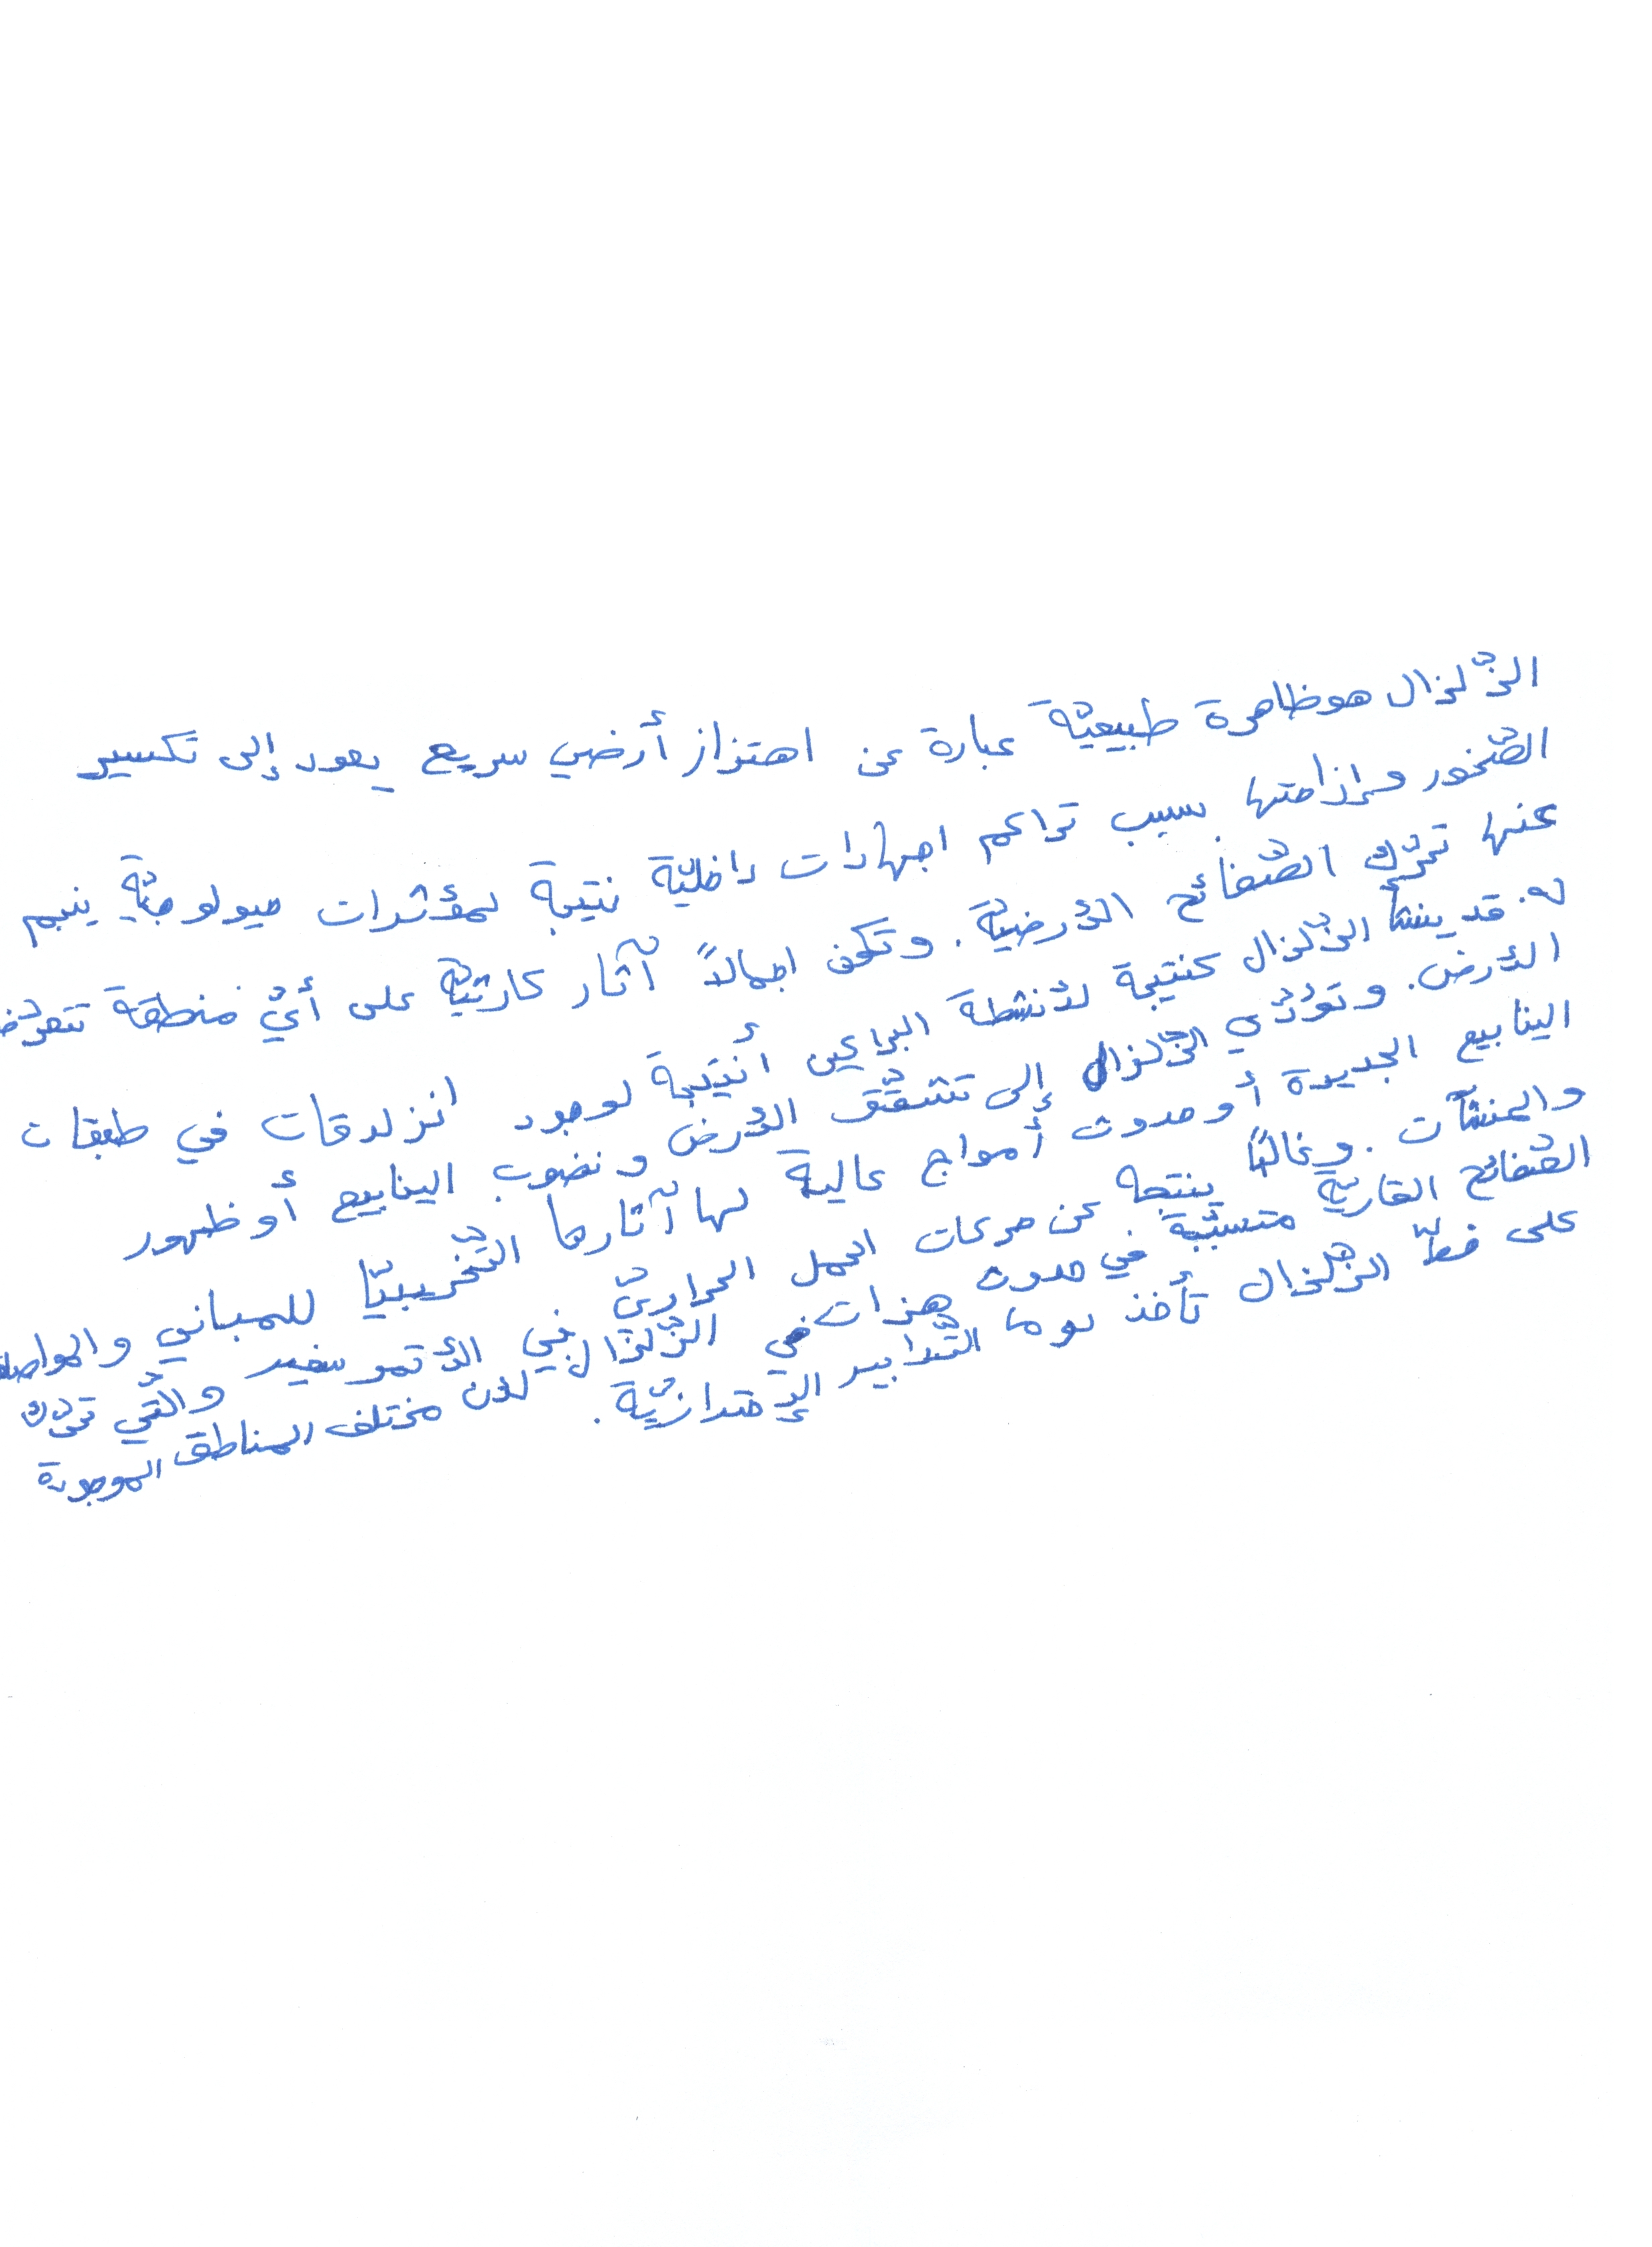 الزّلزال هو ظاهرة طبيعيّة عبارة عن اهتزاز أرضي سريع يعود إلى تكسير
الصّخور وإزاحتها بسبب تراكم اجهادات داخليّة نتيجة لمؤثرات جيولوجيّة ينجم
عنها تحرّك الصّفائح الأرضيّة. وتكون اجمالاً آثار كارثيّة على أيّ منطقة تتعرّض
له. قد ينشأ الزّلزال كنتيجة لأنشطة البراكين أنتيجة لوجود انزلاقات في طبقات
الأرض. وتؤدّي الزّلزال إلى تشقّق الأرض ونضوب الينابيع أو ظهور
الينابيع الجديدة أو حدوث أمواج عالية لها آثارها التّخريبيّا للمباني والمواصلا
والمنشآت. وغالبًا ينتجه عن حركات الحمل الحراريّ في الأتموسفير والّتي تحرّك
الصّفائح القاريّة متسبّبة في حدوث هزات في الزّلزال لأن مختلف المناطق الموجودة
على خطّ الزّلزال تأخذ يوما التّدابير الإحترازيّة.